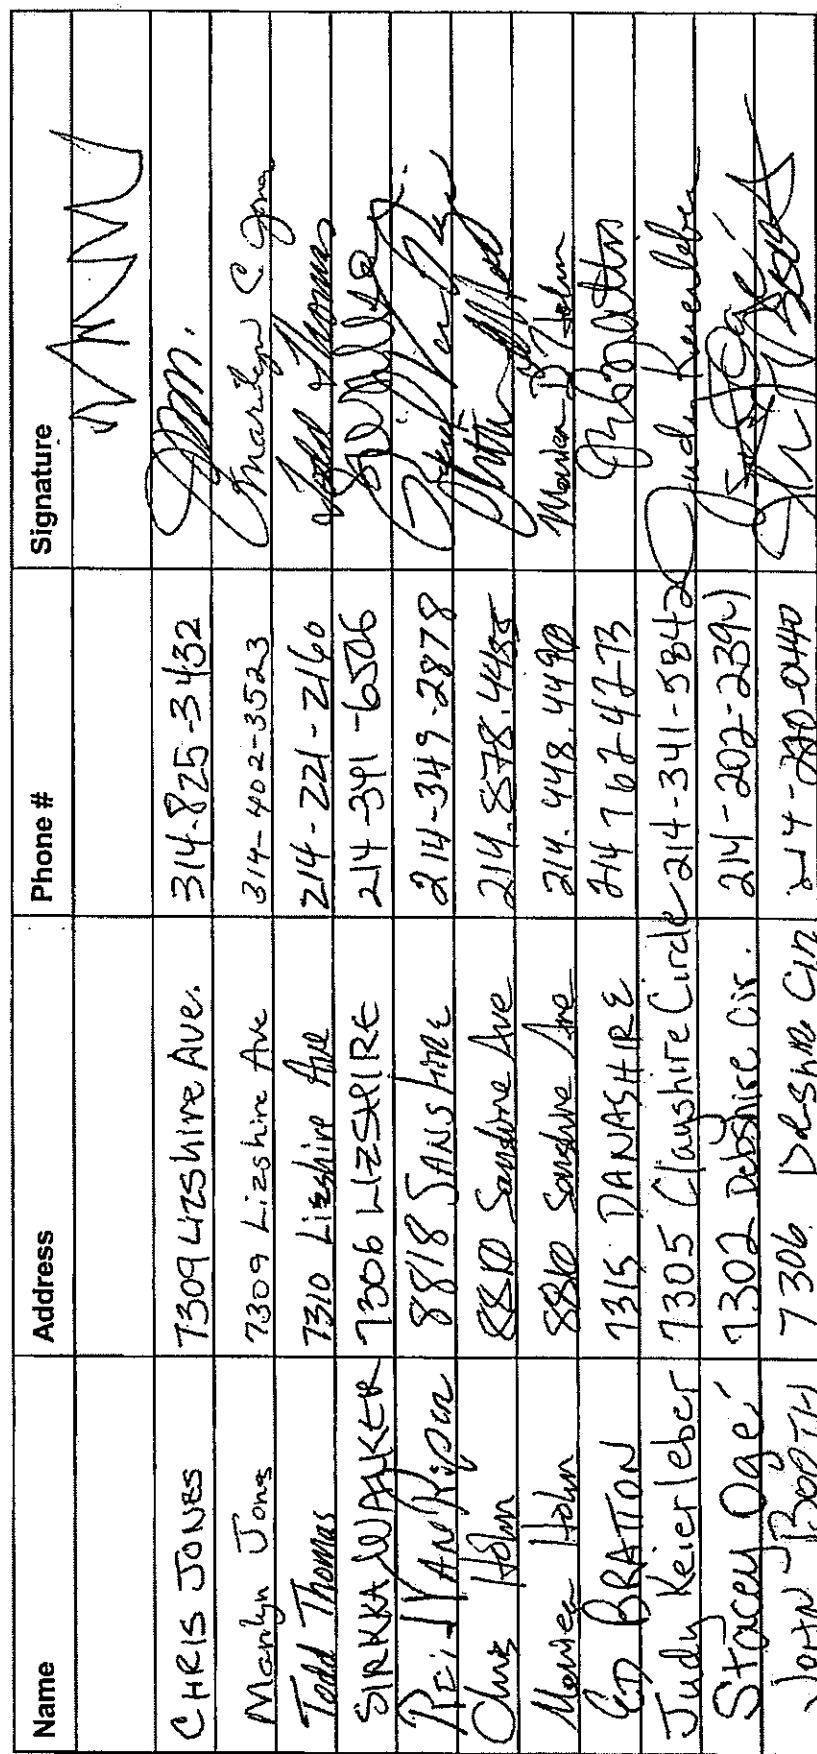 Name Address Phone # Signature
CHRIS JONES 7309 Lizshire Ave. 314-825-3432
Marilyn Jones 7309 Lizshire Ave 314-402-3523 Marilyn C Jones
Todd Thomas 7310 Lizshire Ave 214-221-2160 Todd Thomas
SIRKKA WALKER 7306 LIZSHIRE 214-341-6506
8818 SANSHIRE 214-349-2878
Chris Hohn 8810 Sanshire Ave 214.878.4485
Hohn 8810 Sanshire Ave 214.448.4490
ED BRATTON 7315 DANASHIRE 214 762-4273
Judy Keierleber 7305 Clayshire Circle 214-341-5842 Judy Keierleber
Stacey Ogé 7302 Debshire Cir.
JOHN BOOTH 7306